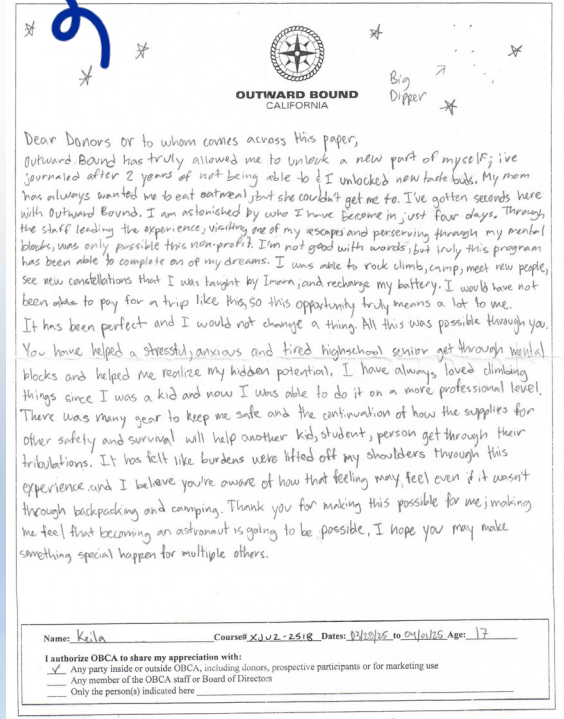 OUTWARD BOUND
CALIFORNIA
Big
Dipper
Dear Donors or to whom comes across this paper,
Outward Bound has truly allowed me to unlock a new part of myself; i've
journaled after 2 years of not being able to & I unlocked new taste buds. My mom
has always wanted me to eat oatmeal, but she couldn't get me to. I've gotten seconds here
with Outward Bound. I am astonished by who I have become in just four days. Through
the staff leading the experience, visiting one of my escapes and perserving through my mental
blocks, was only possible this non-profit. I'm not good with words, but truly this program
has been able to complete on of my dreams. I was able to rock climb, camp, meet new people,
see new constellations that I was taught by Imara, and recharge my battery. I would have not
been able to pay for a trip like this, so this opportunity truly means a lot to me.
It has been perfect and I would not change a thing. All this was possible through you.
You have helped a stressful, anxious and tired highschool senior get through mental
blocks and helped me realize my hidden potential. I have always loved climbing
things since I was a kid and now I was able to do it on a more professional level.
There was many gear to keep me safe and the continuation of how the supplies for
other safety and survival will help another kid, student, person get through their
tribulations. It has felt like burdens were lifted off my shoulders through this
experience, and I believe you're aware of how that feeling may feel even if it wasn't
through backpacking and camping. Thank you for making this possible for me; making
me feel that becoming an astronaut is going to be possible, I hope you may make
something special happen for multiple others.
Name: Keila Course# XJU2-2518 Dates: 03/29/25 to 04/01/25 Age: 17
I authorize OBCA to share my appreciation with:
✓ Any party inside or outside OBCA, including donors, prospective participants or for marketing use
Any member of the OBCA staff or Board of Directors
Only the person(s) indicated here